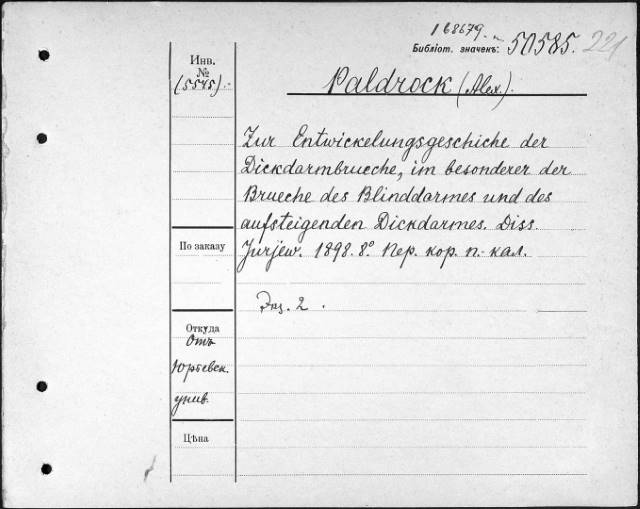 168679.
Библіот. значекъ: 50585. 221
Инв.
№
(5545).
Paldrock (Alex.).
Zur Entwickelungsgeschiche der
Dickdarmbrueche, im besonderer der
Brueche des Blinddarmes und des
aufsteigenden Dickdarmes. Diss.
Jurjew. 1898. 8° Пер. кор. п. кал.
Экз. 2.
По заказу
Откуда
Отъ
Юрьевск.
унив.
Цѣна